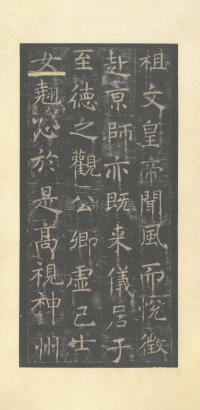 祖文皇帝聞風而悅徵
赴京師亦既来儀居于
至德之觀公卿虛己士
女翹心於是高視神州